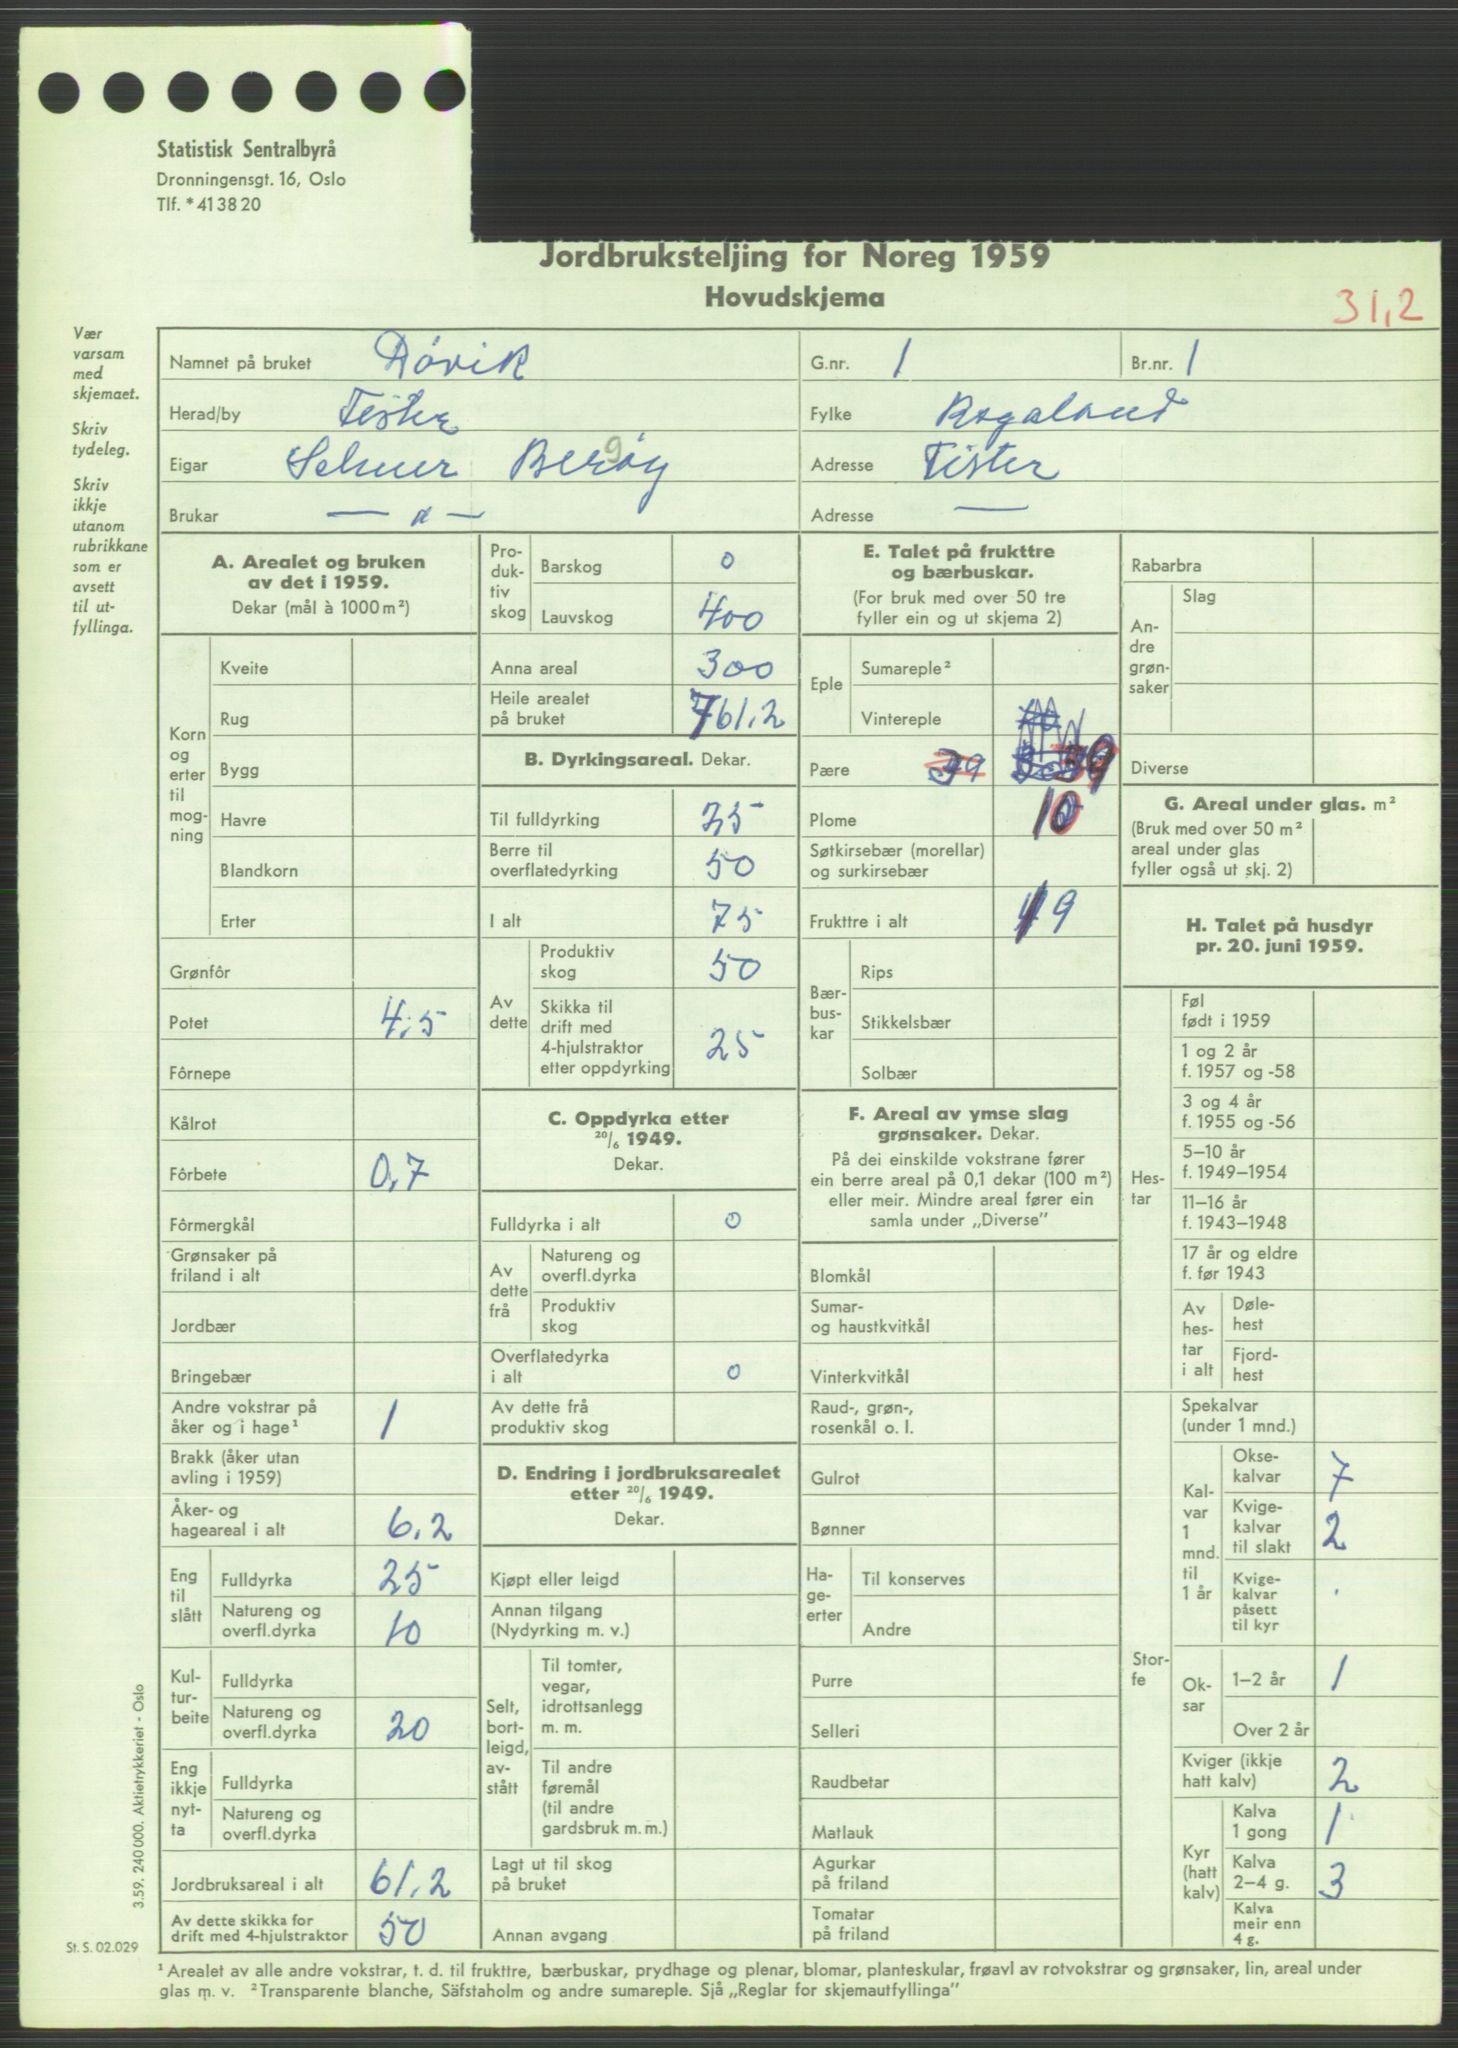 Statistisk Sentralbyrå
Dronningensgt. 16, Oslo
Tlf. * 41 38 20
Jordbruksteljing for Noreg 1959
Hovudskjema
31,2
Vær
varsam
med
skjemaet.
Skriv
tydeleg.
Skriv
ikkje
utanom
rubrikkane
som er
avsett
til ut-
fyllinga.
Namnet på bruket Røvik
G.nr. 1
Br.nr. 1
Herad/by Fister
Fylke Rogaland
Eigar Selmer Berøy
Adresse Fister
Brukar — " —
Adresse —
A. Arealet og bruken
av det i 1959.
Dekar (mål à 1000 m²)
Korn
og
erter
til
mog-
ning
Kveite
Rug
Bygg
Havre
Blandkorn
Erter
Grønfôr
Potet 4,5
Fôrnepe
Kålrot
Fôrbete 0,7
Fôrmergkål
Grønsaker på
friland i alt
Jordbær
Bringebær
Andre vokstrar på
åker og i hage¹ 1
Brakk (åker utan
avling i 1959)
Åker- og
hageareal i alt 6,2
Eng
til
slått
Fulldyrka 25
Natureng og
overfl.dyrka 10
Kul-
tur-
beite
Fulldyrka
Natureng og
overfl.dyrka 20
Eng
ikkje
nyt-
ta
Fulldyrka
Natureng og
overfl.dyrka
Jordbruksareal i alt 61,2
Av dette skikka for
drift med 4-hjulstraktor 50
Pro-
duk-
tiv
skog
Barskog 0
Lauvskog 400
Anna areal 300
Heile arealet
på bruket 761,2
B. Dyrkingsareal. Dekar.
Til fulldyrking 25
Berre til
overflatedyrking 50
I alt 75
Av
dette
Produktiv
skog 50
Skikka til
drift med
4-hjulstraktor
etter oppdyrking 25
C. Oppdyrka etter
20/6 1949.
Dekar.
Fulldyrka i alt 0
Av
dette
frå
Natureng og
overfl.dyrka
Produktiv
skog
Overflatedyrka
i alt 0
Av dette frå
produktiv skog
D. Endring i jordbruksarealet
etter 20/6 1949.
Dekar.
Kjøpt eller leigd
Annan tilgang
(Nydyrking m. v.)
Selt,
bort-
leigd,
av-
stått
Til tomter,
vegar,
idrottsanlegg
m. m.
Til andre
føremål
(til andre
gardsbruk m. m.)
Lagt ut til skog
på bruket
Annan avgang
E. Talet på frukttre
og bærbuskar.
(For bruk med over 50 tre
fyller ein og ut skjema 2)
Eple
Sumareple²
Vintereple
Pære 39 39
Plome 10
Søtkirsebær (morellar)
og surkirsebær
Frukttre i alt 49
Bær-
bus-
kar
Rips
Stikkelsbær
Solbær
F. Areal av ymse slag
grønsaker. Dekar.
På dei einskilde vokstrane fører
ein berre areal på 0,1 dekar (100 m²)
eller meir. Mindre areal fører ein
samla under „Diverse”
Blomkål
Sumar-
og haustkvitkål
Vinterkvitkål
Raud-, grøn-,
rosenkål o. l.
Gulrot
Bønner
Ha-
ge-
erter
Til konserves
Andre
Purre
Selleri
Raudbetar
Matlauk
Agurkar
på friland
Tomatar
på friland
Rabarbra
An-
dre
grøn-
saker
Slag
Diverse
G. Areal under glas. m²
(Bruk med over 50 m²
areal under glas
fyller også ut skj. 2)
H. Talet på husdyr
pr. 20. juni 1959.
Hes-
tar
Føl
født i 1959
1 og 2 år
f. 1957 og -58
3 og 4 år
f. 1955 og -56
5–10 år
f. 1949–1954
11–16 år
f. 1943–1948
17 år og eldre
f. før 1943
Av
hes-
tar
i alt
Døle-
hest
Fjord-
hest
Stor-
fe
Spekalvar
(under 1 mnd.)
Kal-
var
1
mnd.
til
1 år
Okse-
kalvar 7
Kvige-
kalvar
til slakt 2
Kvige-
kalvar
påsett
til kyr
Ok-
sar
1–2 år 1
Over 2 år
Kviger (ikkje
hatt kalv) 2
Kyr
(hatt
kalv)
Kalva
1 gong 1
Kalva
2–4 g. 3
Kalva
meir enn
4 g.
3.59. 240 000. Aktietrykkeriet - Oslo
St. S. 02.029
¹ Arealet av alle andre vokstrar, t. d. til frukttre, bærbuskar, prydhage og plenar, blomar, planteskular, frøavl av rotvokstrar og grønsaker, lin, areal under
glas m. v. ² Transparente blanche, Säfstaholm og andre sumareple. Sjå „Reglar for skjemautfyllinga”